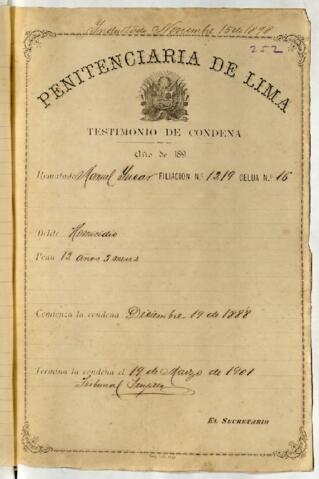 Noviembre 15 de 1898
252
PENITENCIARIA DE LIMA
TESTIMONIO DE CONDENA
Año de 189
Rematado Manuel FILIACION N.º 1219 CELDA N.º 16
Delito Homicidio
Pena 12 años 3 meses
Comienza la condena Diciembre 19 de 1888
Termina la condena el 19 de Marzo de 1901
Tribunal
EL SECRETARIO